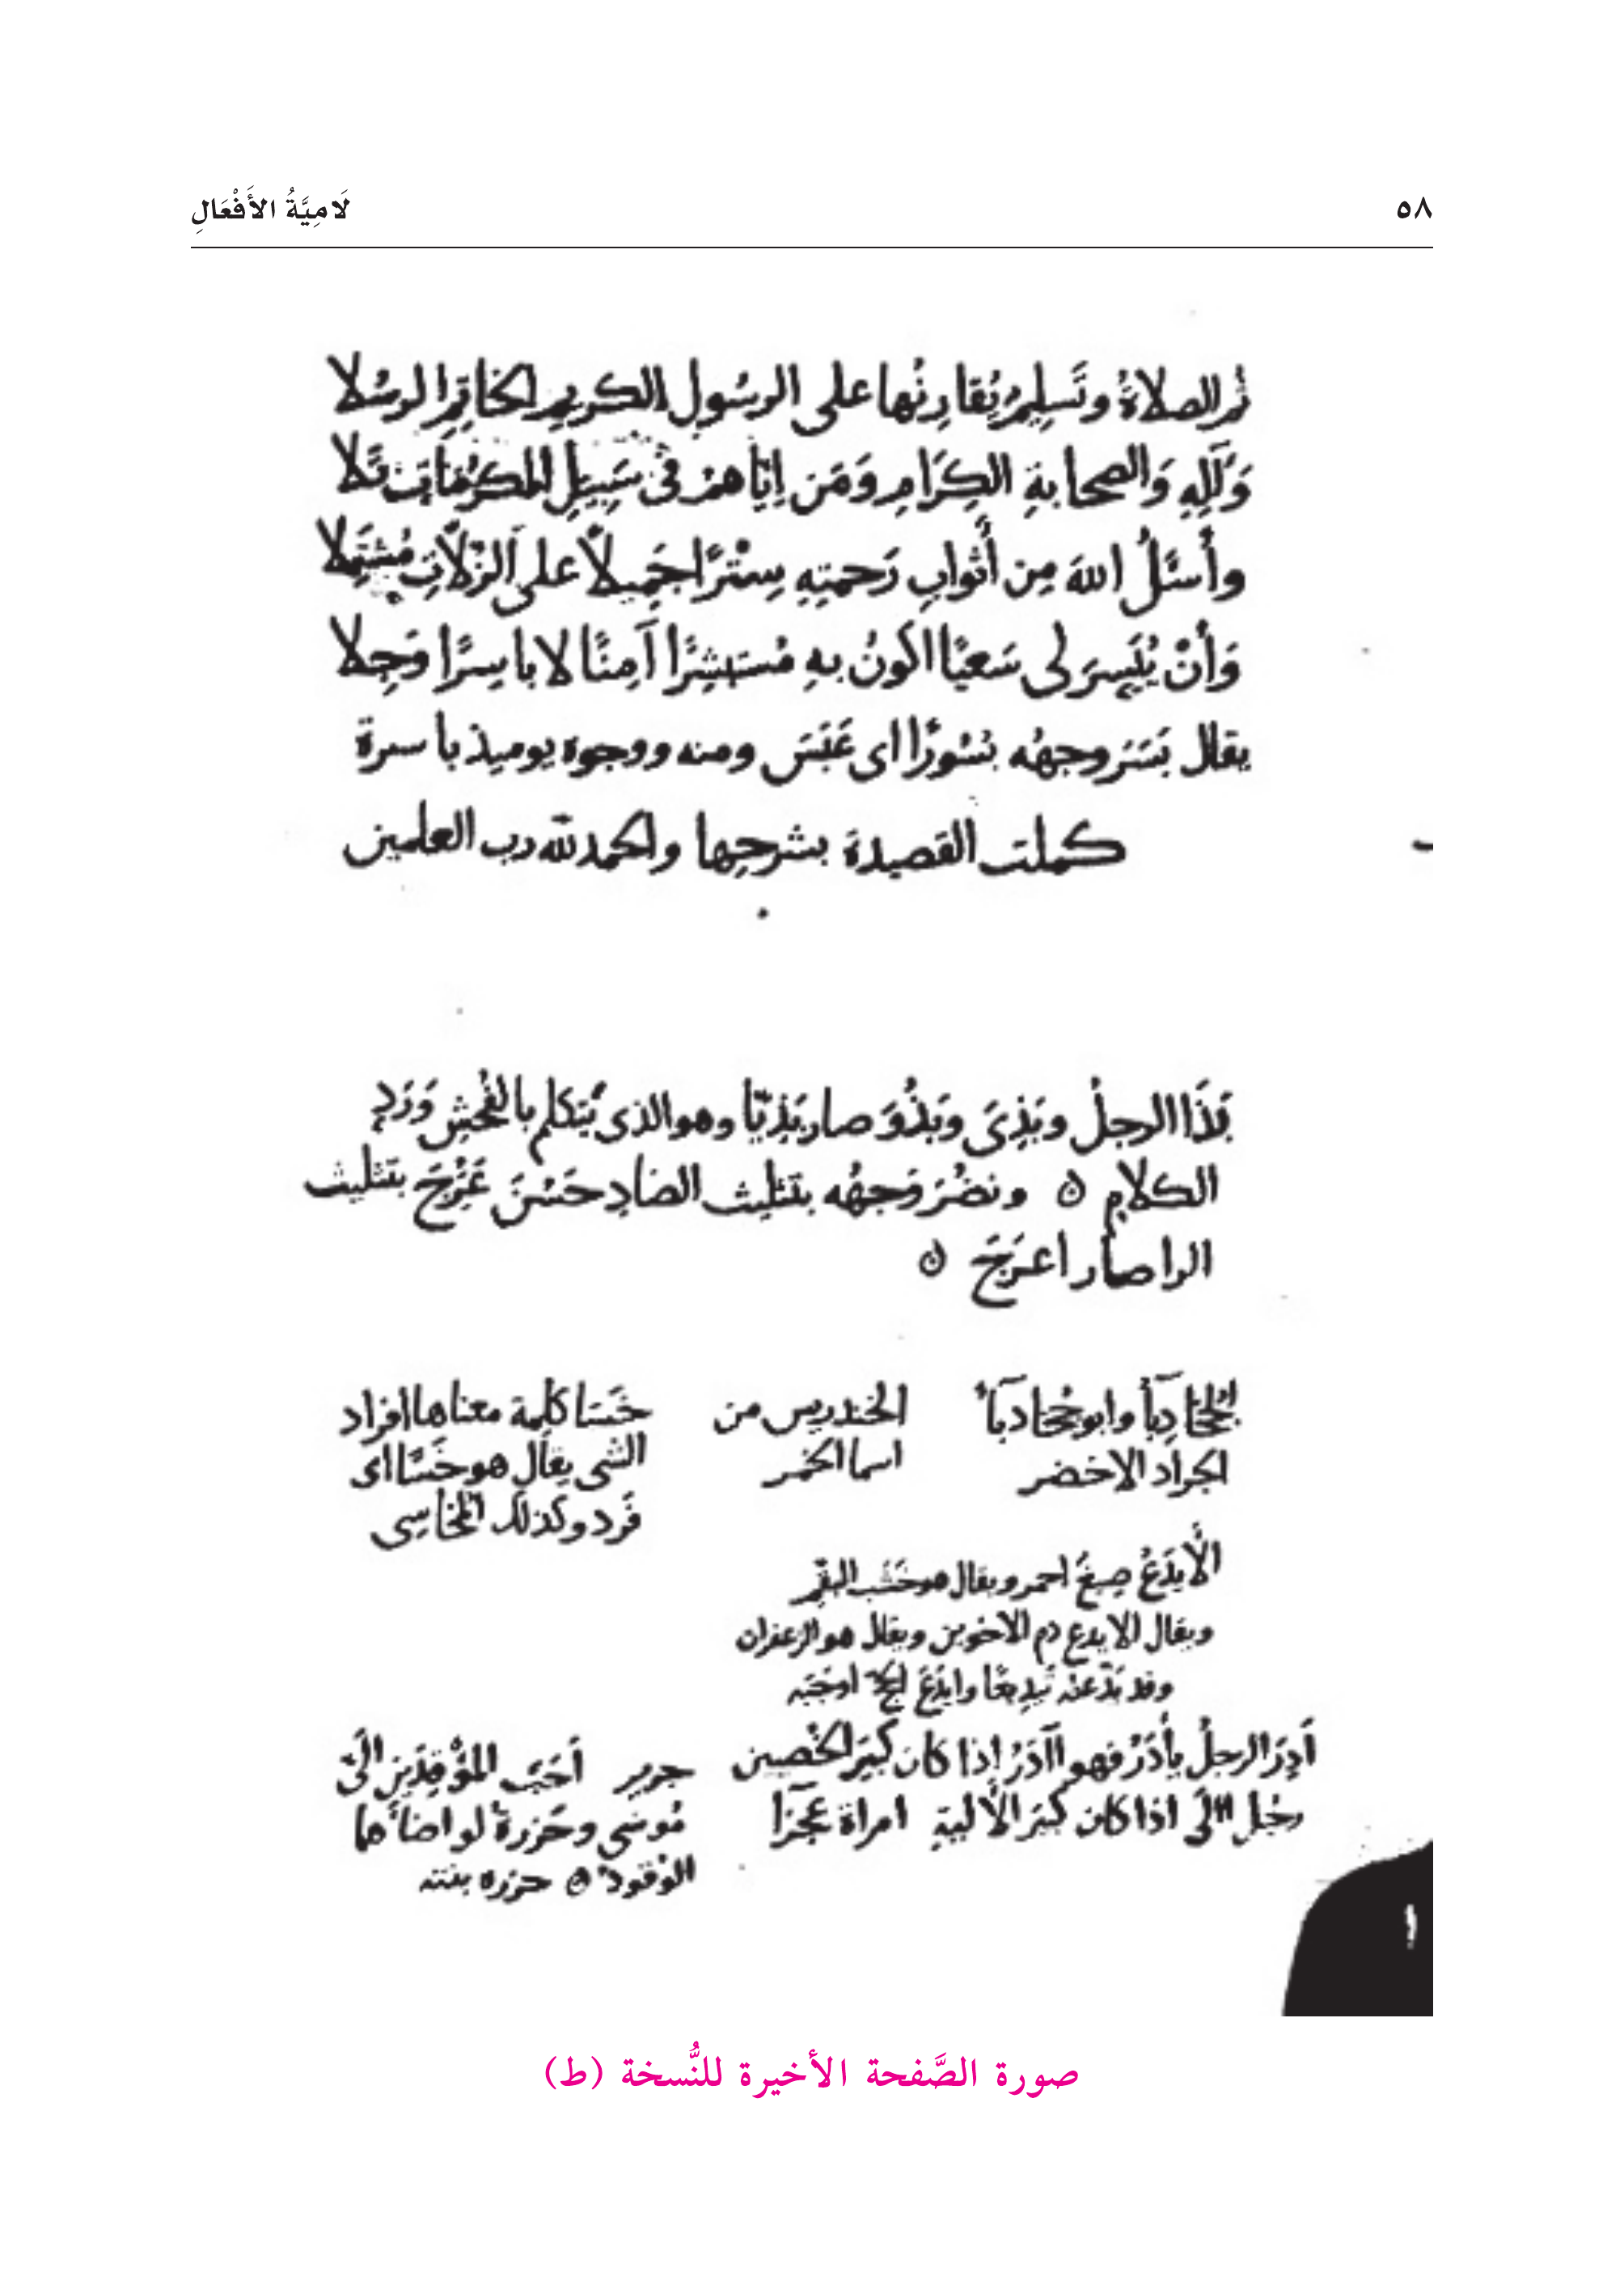 ٥٨
لَامِيَّةُ الأَفْعَالِ
ثم الصلاةُ وتَسلِيمٌ يُقارِنُها على الرسُولِ الكريمِ الخاتِمِ الرسُلا
وَآلِهِ وَالصحابةِ الكِرَامِ وَمَن إيّاهمُ فى سَبِيلِ المكرُمَاتِ تَلا
وأَسئَلُ اللهَ مِن أَثوابِ رَحمتِهِ سِتْرًا جَمِيلًا على الزلّاتِ مُشتَمِلا
وَأنْ يُيَسِرَ لى سَعيًا اكونُ بهِ مُستَبشِرًا آمِنًا لا باسِرًا وَجِلا
يقال بَسَرَ وجهُه بُسُورًا اى عَبَسَ ومنه ووجوه يوميذ باسرة
كملت القصيدة بشرحِها والحمد لله رب العلمين
بَذَا الرجلُ وبَذِىَ وبَذُوَ صار بَذِيًّا وهو الذى يَتكلم بالفُحشِ وَرَدِ
الكلامِ ٥ ونضُرَ وَجهُه بتثليث الضادِ حَسُنَ عَرُجَ بتثليث
الرا صار اعرَجَ ٥
الجُخادِبآ وابو جُخادبآ
الجراد الاخضر
الخندريس من
اسما الخمر
خَسَا كلمة معناها افراد
الشى يقال هو خَسًا اى
فَرد وكذلك المخاسِى
الأيدَعُ صِبغٌ احمر ويقال هو خَشَب البقّم
ويقال الايدع دم الاخوين ويقال هو الزعفران
وقد يَدّعته تَيدِيعًا وايدَعَ الحج اوجَبَه
أَدِرَ الرجلُ يأدَرُ فهو اآدَرُ اذا كان كبيَر الخُصيين
رجل الَى اذا كان كبيَر الأليةِ امراة عجزآ
جرير أَحَبّ المؤقِدَين الَىّ
مُوسَى وحَزرةُ لو اضاَءها
الوُقودُ ٥ حزره بنته
صورة الصَّفحة الأخيرة للنُّسخة (ط)